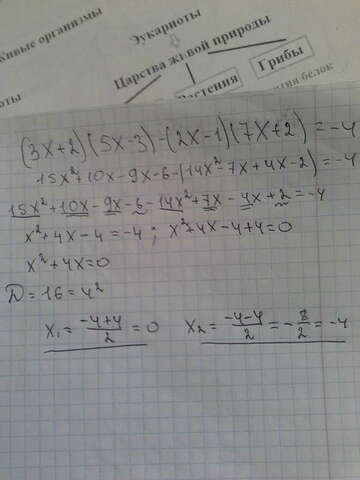 Живые организмы
Эукариоты
Царства живой природы
Растения
Грибы
белок
(3x+2)(5x-3)-(2x-1)(7x+2)=-4
15x²+10x-9x-6-(14x²-7x+4x-2)=-4
15x²+10x-9x-6-14x²+7x-4x+2=-4
x²+4x-4=-4; x²+4x-4+4=0
x²+4x=0
D=16=4²
x₁=(-4+4)/2=0 x₂=(-4-4)/2=-8/2=-4